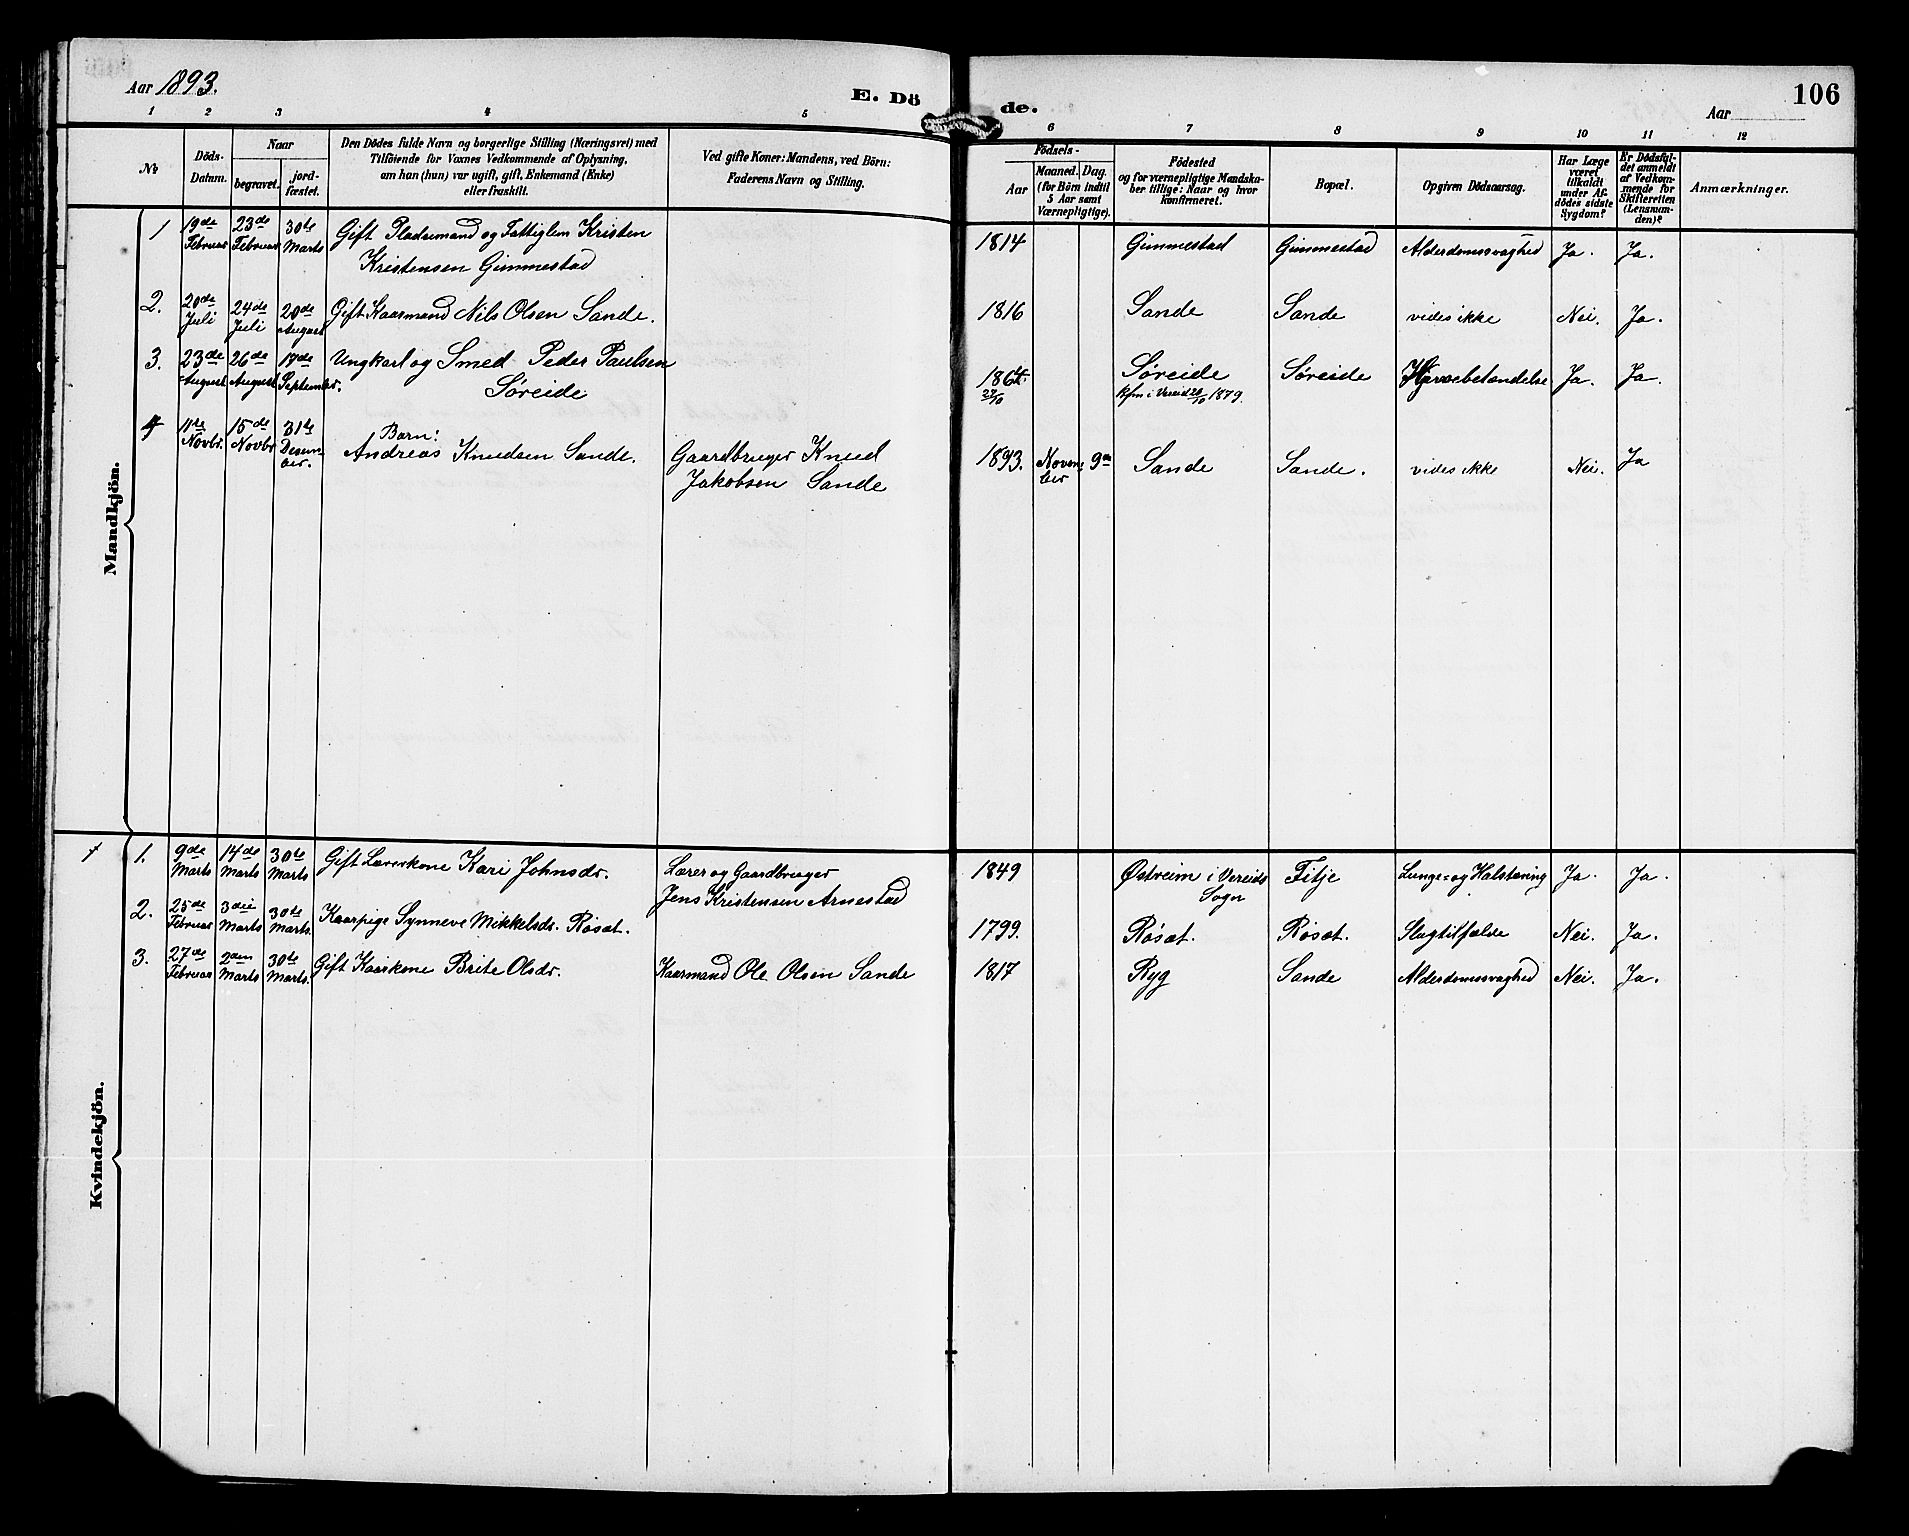 Aar 1893.
E. Dö
de.
Aar
106
1 2 3 4 5 6 7 8 9 10 11 12
No
Döds-
Datum.
Naar
begravet.
jord-
fæstet.
Den Dödes fulde Navn og borgerlige Stilling (Næringsvei) med
Tilföiende for Voxnes Vedkommende af Oplysning,
om han (hun) var ugift, gift, Enkemand (Enke)
eller fraskilt.
Ved gifte Koner: Mandens, ved Börn:
Faderens Navn og Stilling.
Födsels-
Aar
Maaned. Dag.
(for Börn indtil
5 Aar samt
Værnepligtige).
Födested
og for værnepligtige Mandska-
ber tillige: Naar og hvor
konfirmeret.
Bopæl.
Opgiven Dödsaarsag.
Har Læge
været
tilkaldt
under Af-
dödes sidste
Sygdom?
Er Dödsfal-
det anmeldt
af Vedkom-
mende for
Skifteretten
(Lensman-
den)?
Anmærkninger.
Mandkjön.
1 19de Februar 23de Februar 30te Marts Gift Pladsemand og Fattiglem Kristen
Kristensen Gimmestad
1814 Gimmestad Gimmestad Alderdomssvaghed Ja. Ja.
2. 20de Juli 24de Juli 20de August Gift Kaarmand Nils Olsen Sande.
1816 Sande Sande vides ikke Nei. Ja.
3. 23de August 26de August 17de September. Ungkarl og Smed Peder Paulsen
Søreide
1864. 27/10 Søreide
kfm i Vereid 26/10 1879.
Søreide betændelse Ja. Ja.
4 11te Novbr. 15de Novbr 31te Desember. Barn:
Andreas Knudsen Sande.
Gaardbruger Knud
Jakobsen Sande
1893. November 9de Sande Sande. vides ikke Nei. Ja
Kvindekjön.
1. 9de Marts 14de Marts 30te Marts Gift Lærerkone Kari Johnsdr.
Lærer og Gaardbruger
Jens Kristensen Arnestad
1849 Østreim i Vereids
Sogn
Fitje Lunge- og Halstæring Ja. Ja.
2. 25de Februar 3die Marts 30te Marts. Kaarpige Synneve Mikkelsdr. Røsæt.
1799. Røsæt. Røsæt. Slagtilfælde Nei. Ja.
3. 27de Februar 2den Marts 30te Marts. Gift Kaarkone Brite Olsdr.
Kaarmand Ole Olsen Sande
1817 Ryg Sande Alderdomssvaghed Nei. Ja.